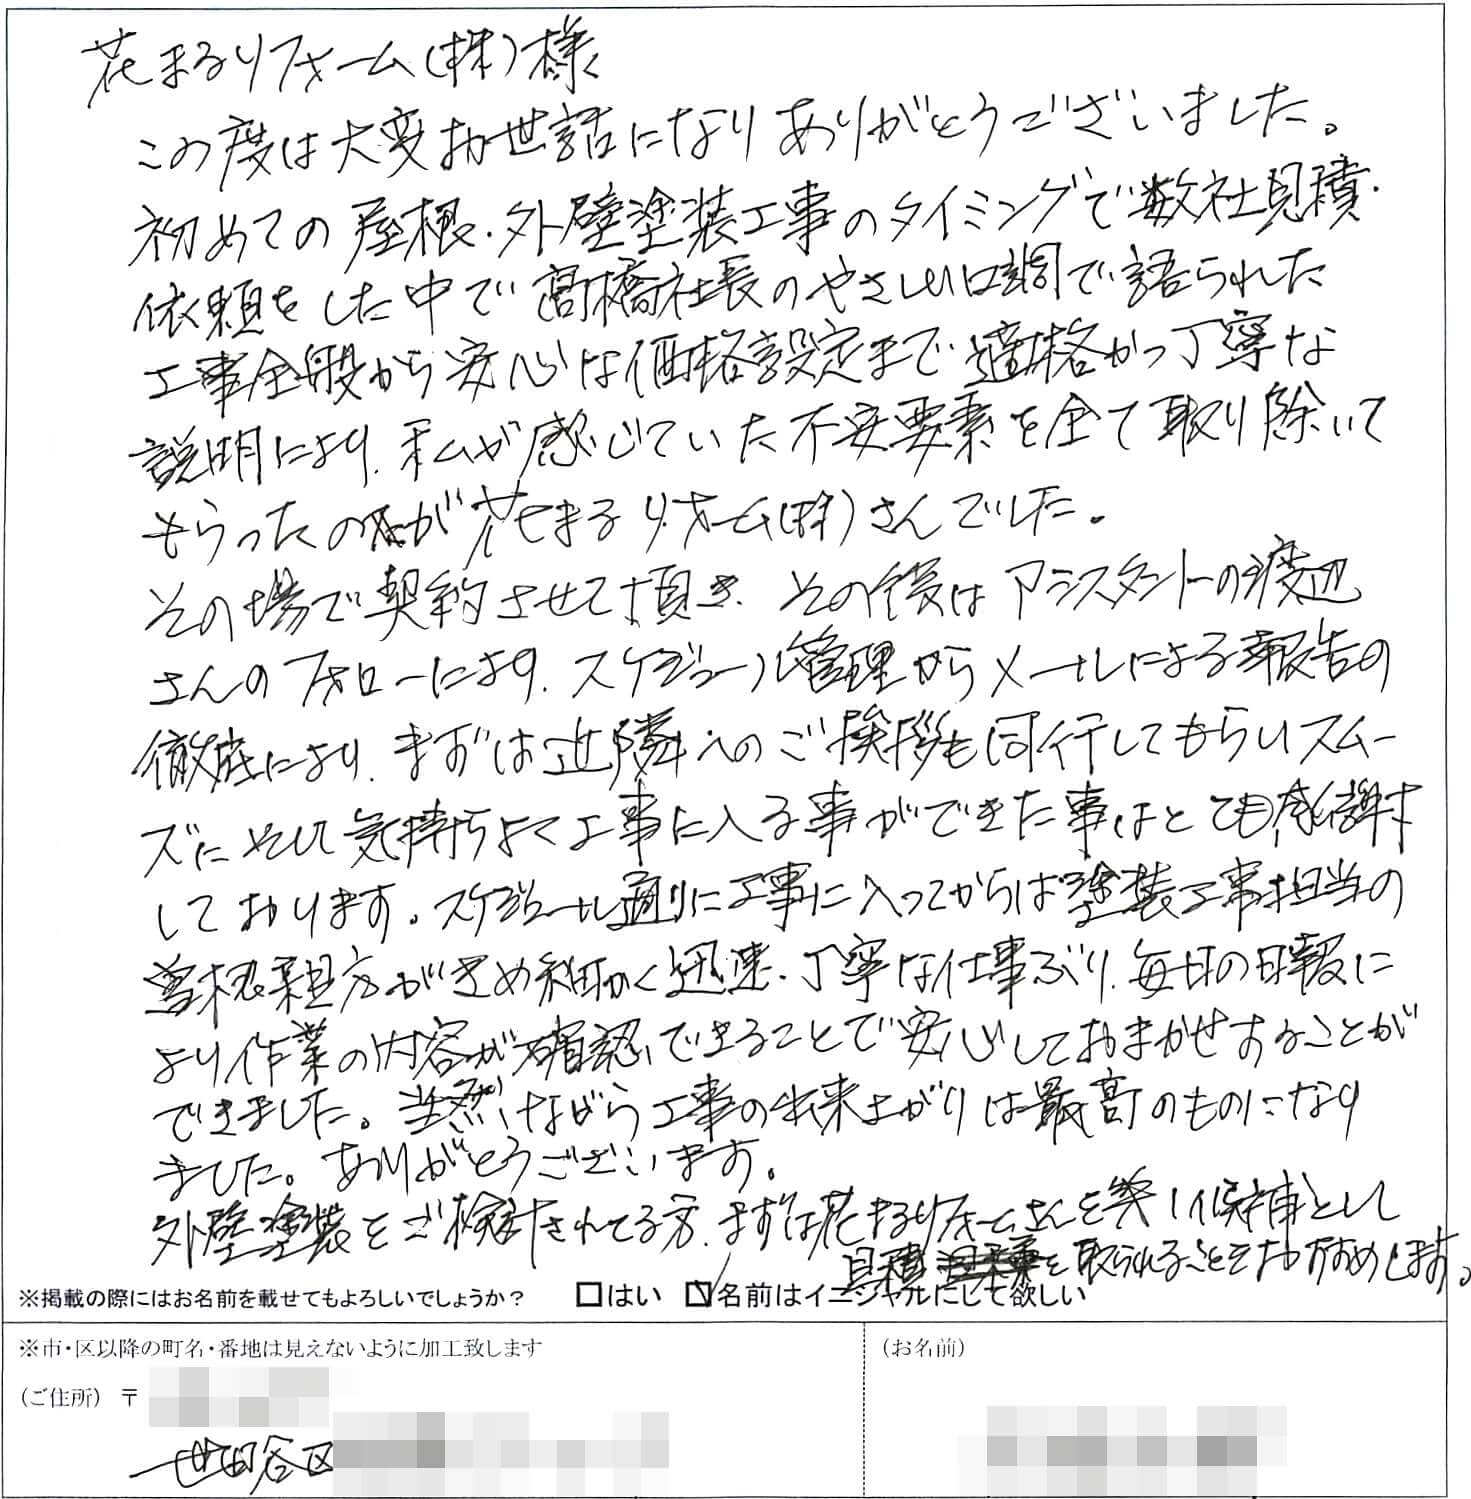 花まるリフォーム(株)様
この度は大変お世話になりありがとうございました。
初めての屋根・外壁塗装工事のタイミングで数社見積・
依頼をした中で高橋社長のやさしい口調で語られた
工事全般から安心な価格設定まで適格かつ丁寧な
説明により、私が感じていた不安要素を全て取り除いて
もらったのが花まるリフォーム(株)さんでした。
その場で契約させて頂き、その後はアシスタントの渡辺
さんのフォローにより、スケジュール管理からメールによる報告の
徹底により、まずは近隣へのご挨拶も同行してもらいスムー
ズにそして気持ちよく工事に入る事ができた事はとても感謝
しております。スケジュール通りに工事に入ってからは塗装工事担当の
曽根親方がきめ細かく迅速・丁寧な仕事ぶり、毎日の日報に
より作業の内容が確認できることで安心しておまかせすることが
できました。当然ながら工事の出来上がりは最高のものになり
ました。ありがとうございます。
外壁塗装をご検討されてる方、まずは花まるリフォームさんを第1候補として
見積を取られることをおすすめします。
※掲載の際にはお名前を載せてもよろしいでしょうか? □はい ☑名前はイニシャルにして欲しい
※市・区以降の町名・番地は見えないように加工致します
(お名前)
(ご住所) 〒
世田谷区